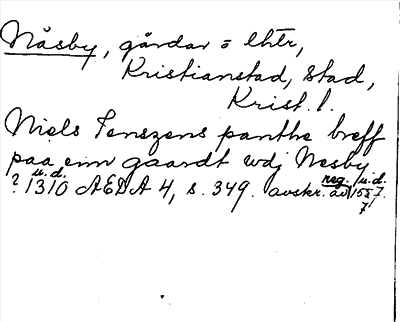 Näsby, gårdar = lhtr,
Kristianstad, stad,
Krist. l.
Niels Jenszens panthe breff
paa einn gaardt wdj Nesby
u.d. reg. u.d.
? 1310 AEDA 4, s. 349. avskr. av 155 7.
7